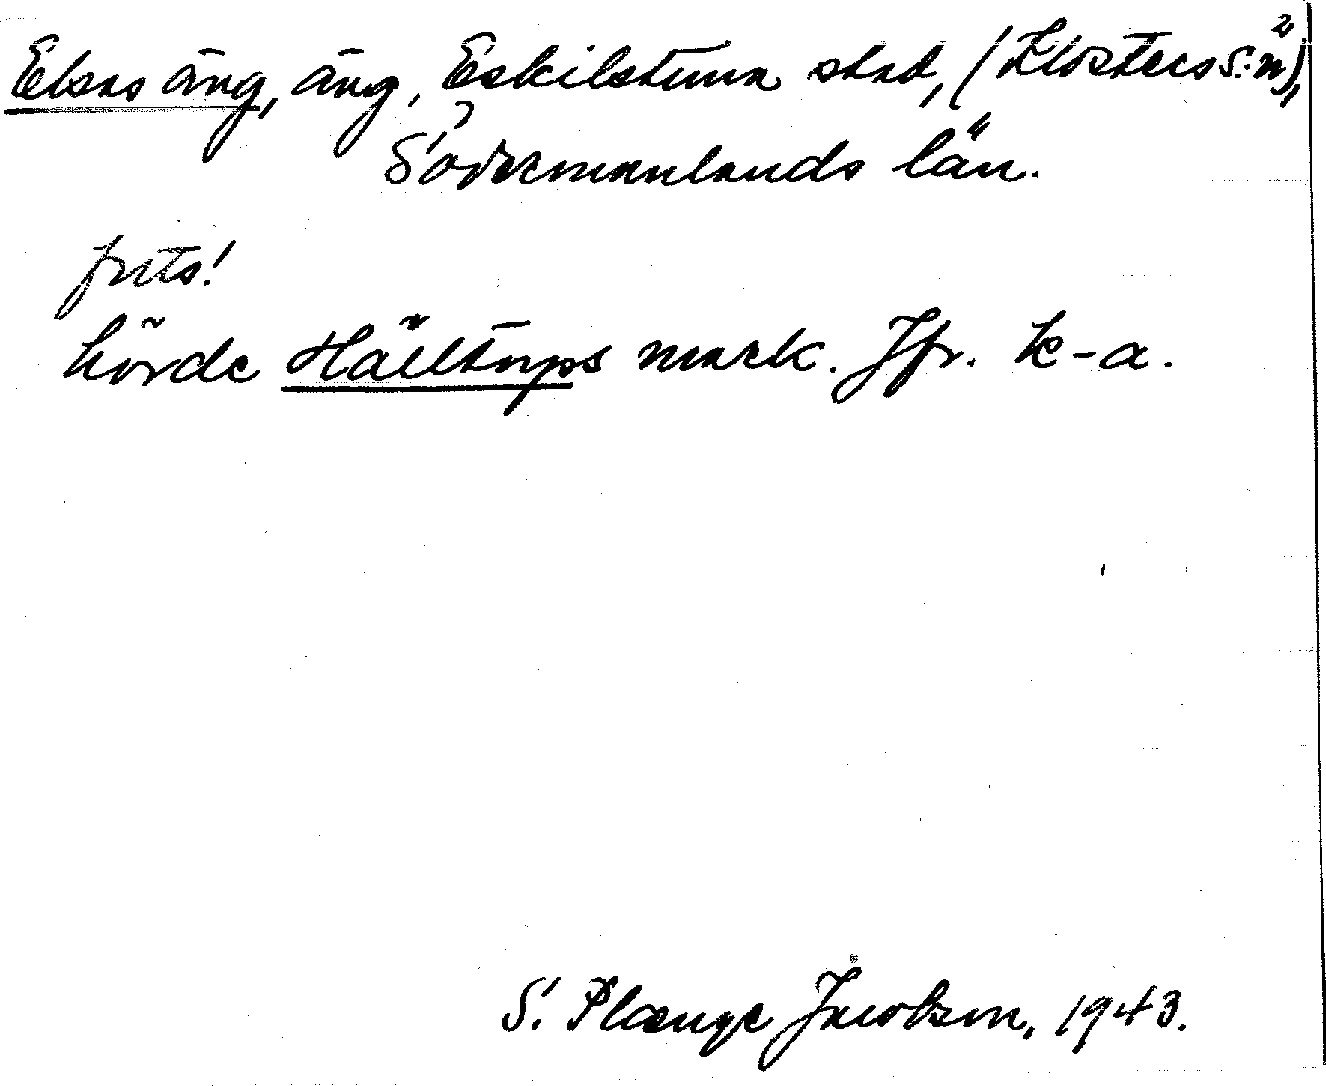 Elsas äng, äng, Eskilstuna stad, (Klosters s:n),
Södermanlands län.
hörde Hälltorps mark. Jfr. k-a.
S. Plænge Jacobson, 1943.